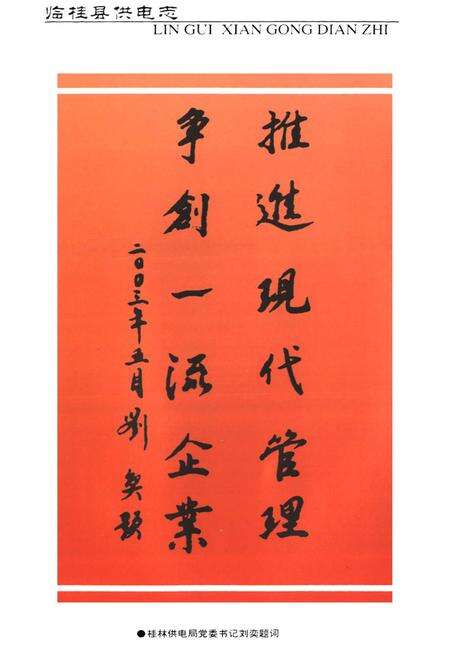 临桂县供电志
LIN GUI XIAN GONG DIAN ZHI
推進現代管理
争創一流企業
二〇〇三年五月劉奕题
●桂林供电局党委书记刘奕题词